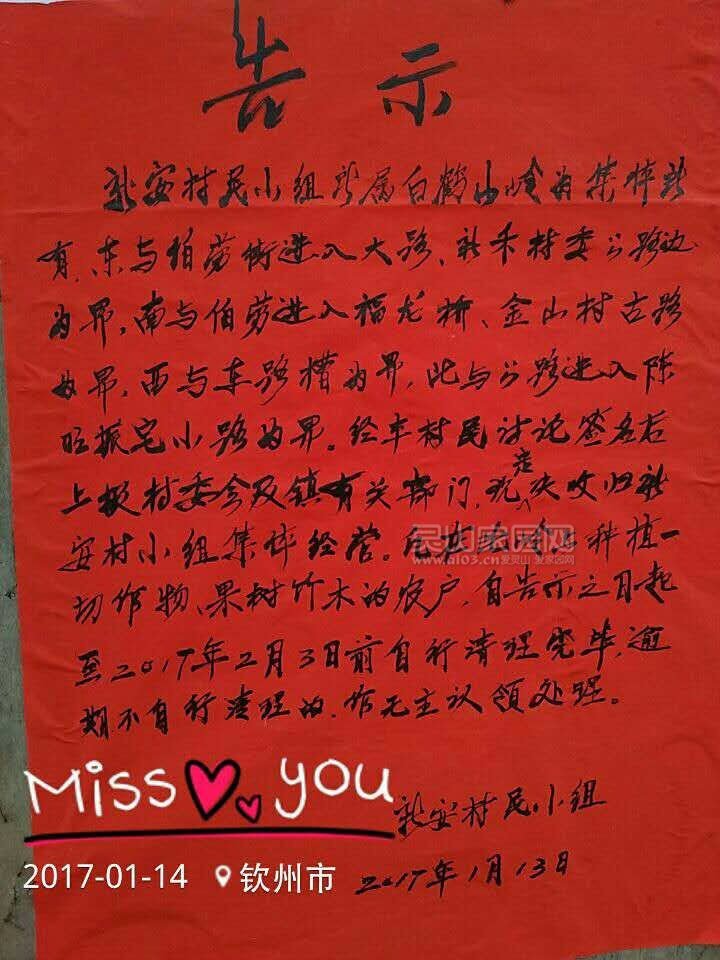 告示
新安村民小组所属白鹤山岭为集体所
有,东与伯劳街进入大路、新禾村委公路边
为界,南与伯劳进入福龙桥、金山村古路
为界,西与车路槽为界,北与公路进入陈
旺振宅小路为界。经本村民讨论签名后
上报村委会及镇有关部门,现决定收归新
安村小组集体经营。凡在
种植一
切作物、果树竹木的农户,自告示之日起
至2017年2月3日前自行清理完毕,逾
期不自行清理的,作无主认领处理。
新安村民小组
2017年1月13日
Miss you
2017-01-14 钦州市
灵山家园网
www.hi03.cn 爱灵山 爱家园网